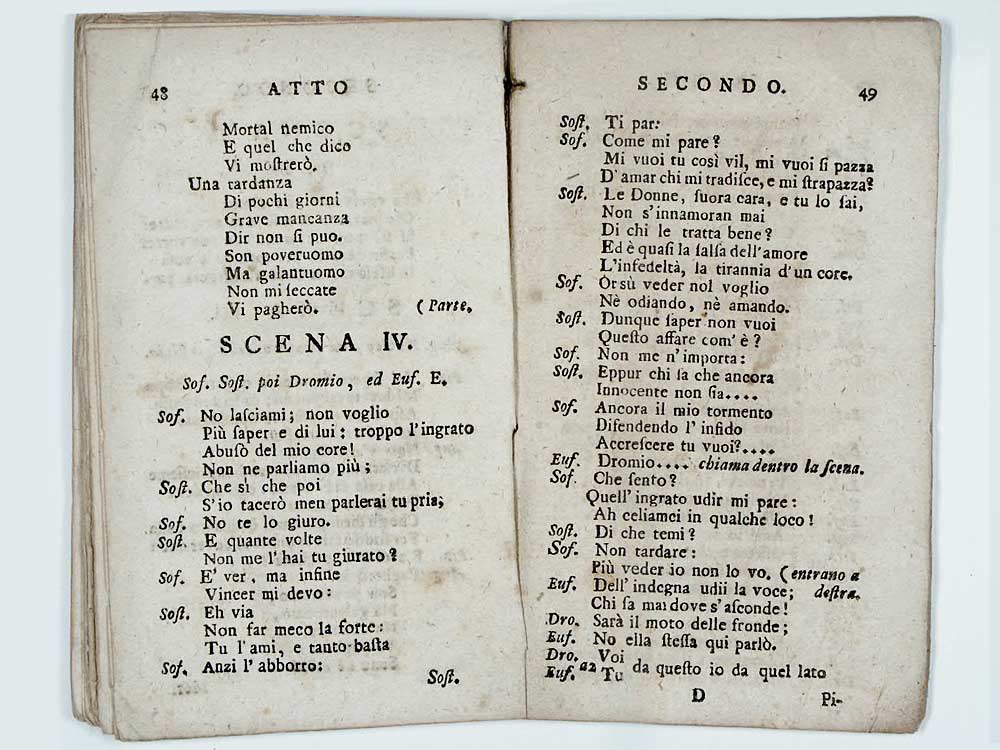 48 ATTO
Mortal nemico
E quel che dico
Vi moſtrerò.
Una tardanza
Di pochi giorni
Grave mancanza
Dir non ſi puo.
Son poveruomo
Ma galantuomo
Non mi ſeccate
Vi pagherò. (Parte.
SCENA IV.
Sof. Soſt. poi Dromio, ed Euf. E.
Sof. No laſciami; non voglio
Più ſaper e di lui: troppo l'ingrato
Abuſò del mio core!
Non ne parliamo più;
Soſt. Che sì che poi
S'io tacerò men parlerai tu pria;
Sof. No te lo giuro.
Soſt. E quante volte
Non me l'hai tu giurato?
Sof. E' ver, ma infine
Vincer mi devo:
Soſt. Eh via
Non far meco la forte:
Tu l'ami, e tanto baſta
Sof. Anzi l'abborro:
Soſt.
SECONDO. 49
Soſt. Ti par:
Sof. Come mi pare?
Mi vuoi tu così vil, mi vuoi ſi pazza
D'amar chi mi tradiſce, e mi ſtrapazza?
Soſt. Le Donne, ſuora cara, e tu lo ſai,
Non s'innamoran mai
Di chi le tratta bene?
Ed è quaſi la ſalſa dell'amore
L'infedeltà, la tirannia d'un core.
Sof. Orsù veder nol voglio
Nè odiando, nè amando.
Soſt. Dunque ſaper non vuoi
Queſto affare com'è?
Sof. Non me n'importa:
Soſt. Eppur chi ſa che ancora
Innocente non ſia....
Sof. Ancora il mio tormento
Difendendo l'infido
Accreſcere tu vuoi?....
Euf. Dromio.... chiama dentro la ſcena.
Sof. Che ſento?
Quell'ingrato udir mi pare:
Ah celiamci in qualche loco!
Soſt. Di che temi?
Sof. Non tardare:
Più veder io non lo vo. (entrano a
Euf. Dell'indegna udii la voce; deſtra.
Chi ſa mai dove s'aſconde!
Dro. Sarà il moto delle fronde;
Euf. No ella ſteſſa qui parlò.
Dro. Voi
Euf. a2 Tu da queſto io da quel lato
D Pi-